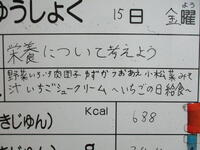 ゅうしょく 15日 金曜
よう
栄養について考えよう
野菜いちご肉団子 もずかつおあえ 小松菜みそ
汁 いちごシュークリーム ～いちごの日給食～
Kcal
きじゅん) 688
きじゅん) g